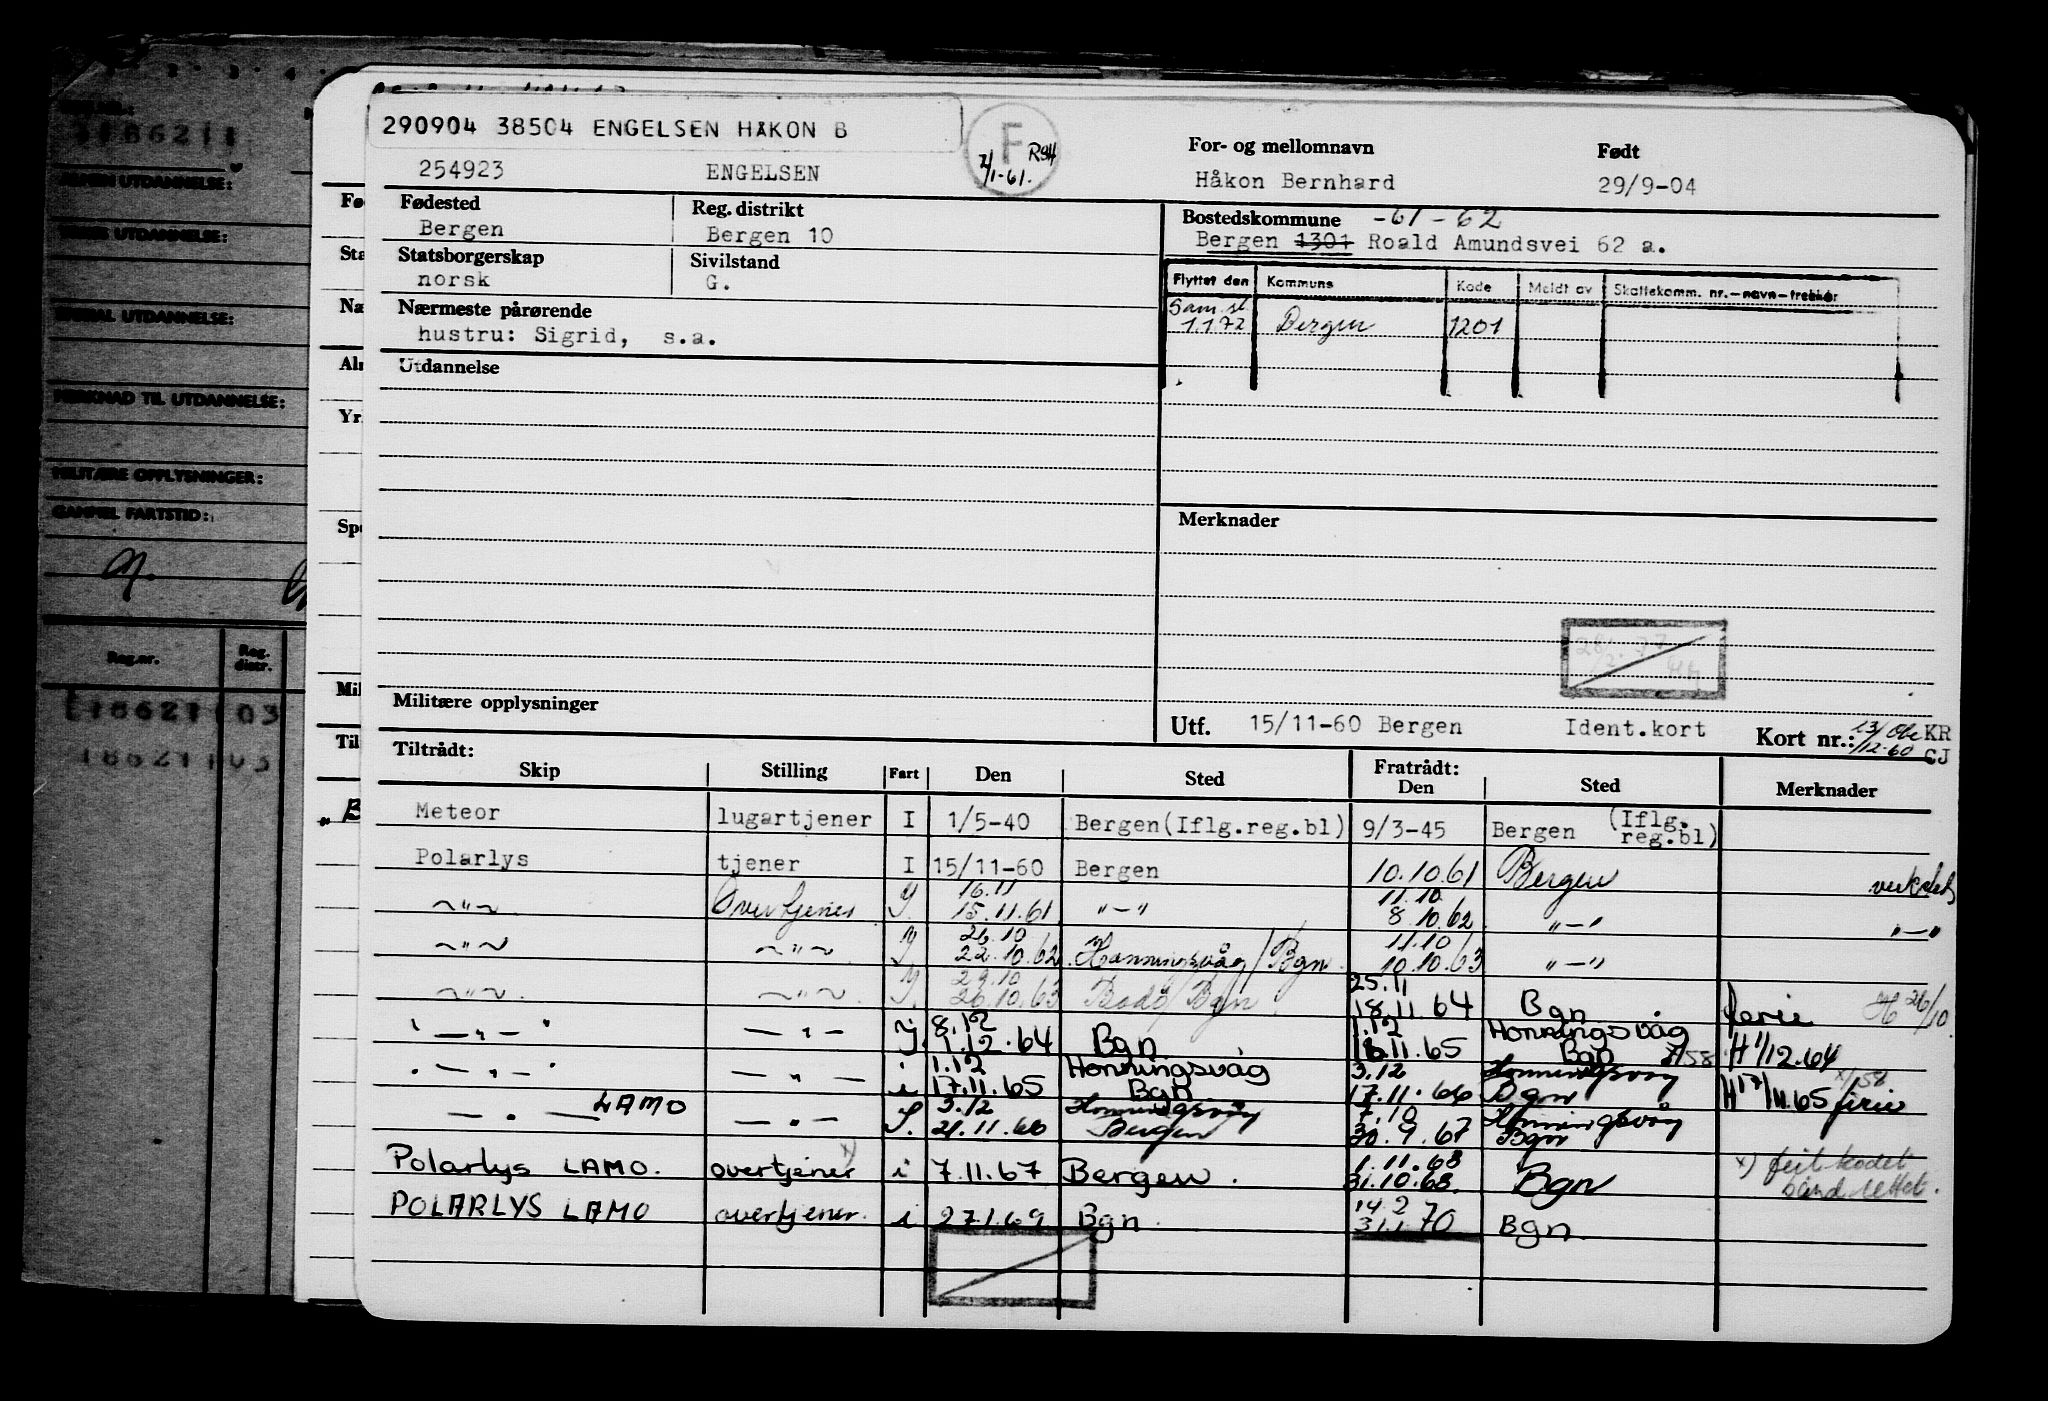 290904 38504 ENGELSEN HÅKON B
F
7/1-61. RSH
254923 ENGELSEN
For- og mellomnavn
Håkon Bernhard
Født
29/9-04
Fødested
Bergen
Reg. distrikt
Bergen 10
Bostedskommune -61-62
Bergen 1301 Roald Amundsvei 62 a.
Statsborgerskap
norsk
Sivilstand
G.
Flyttet den Kommune Kode Meldt av Skattekomm. nr.-navn-trekkår
Sam. st.
1.1.72 Bergen 1201
Nærmeste pårørende
hustru: Sigrid, s.a.
Utdannelse
Merknader
Militære opplysninger
Utf. 15/11-60 Bergen Ident.kort Kort nr.: 13/12-60 KR
CJ
Tiltrådt: Fratrådt:
Skip Stilling Fart Den Sted Den Sted Merknader
Meteor lugartjener I 1/5-40 Bergen(Iflg.reg.bl) 9/3-45 Bergen (Iflg. reg.bl)
Polarlys tjener I 15/11-60 Bergen 10.10.61 Bergen
16.11 11.10
~"~ Overtjener I 15.11.61 "-" 8.10.62 "-" "-"
26.10 11.10
~"~ ~"~ I 22.10.62 Honningsvåg/Bgn 10.10.63 "-"
29.10 25.11
~"~ ~"~ I 26.10.63 Bodø/Bgn 18.11.64 Bgn ferie H 26/10
8.12 1.12 Honningsvåg
"-"-" -"- I 1.12.64 Bgn 16.11.65 Bgn H 1/12.64
1.12 Honningsvåg 3.12 Honningsvåg
"-"-" -"- i 17.11.65 Bgn 17.11.66 Bgn H 17/11.65 ferie
3.12 Honningsvåg 7.10 Honningsvåg
-"- LAMO -"- I. 21.11.66 Bergen 30.9.67 Bgn
1.11.68
Polarlys LAMO. overtjener x) i 7.11.67 Bergen. 31.10.68. Bgn x) feil kodet
bånd rettet.
14.2
POLARLYS LAMO overtjener. i 27.1.69 Bgn. 31.1.70 Bgn.
186211
ALMEN UTDANNELSE:
YRKES UTDANNELSE:
SPESIAL UTDANNELSE:
MERKNAD TIL UTDANNELSE:
MILITÆRE OPPLYSNINGER:
GAMMEL FARTSTID:
Reg.nr. Reg. distr.
186211 03
186211 03
Fø
Sta
Næ
Alm
Yr.
Spe
Mil
Til